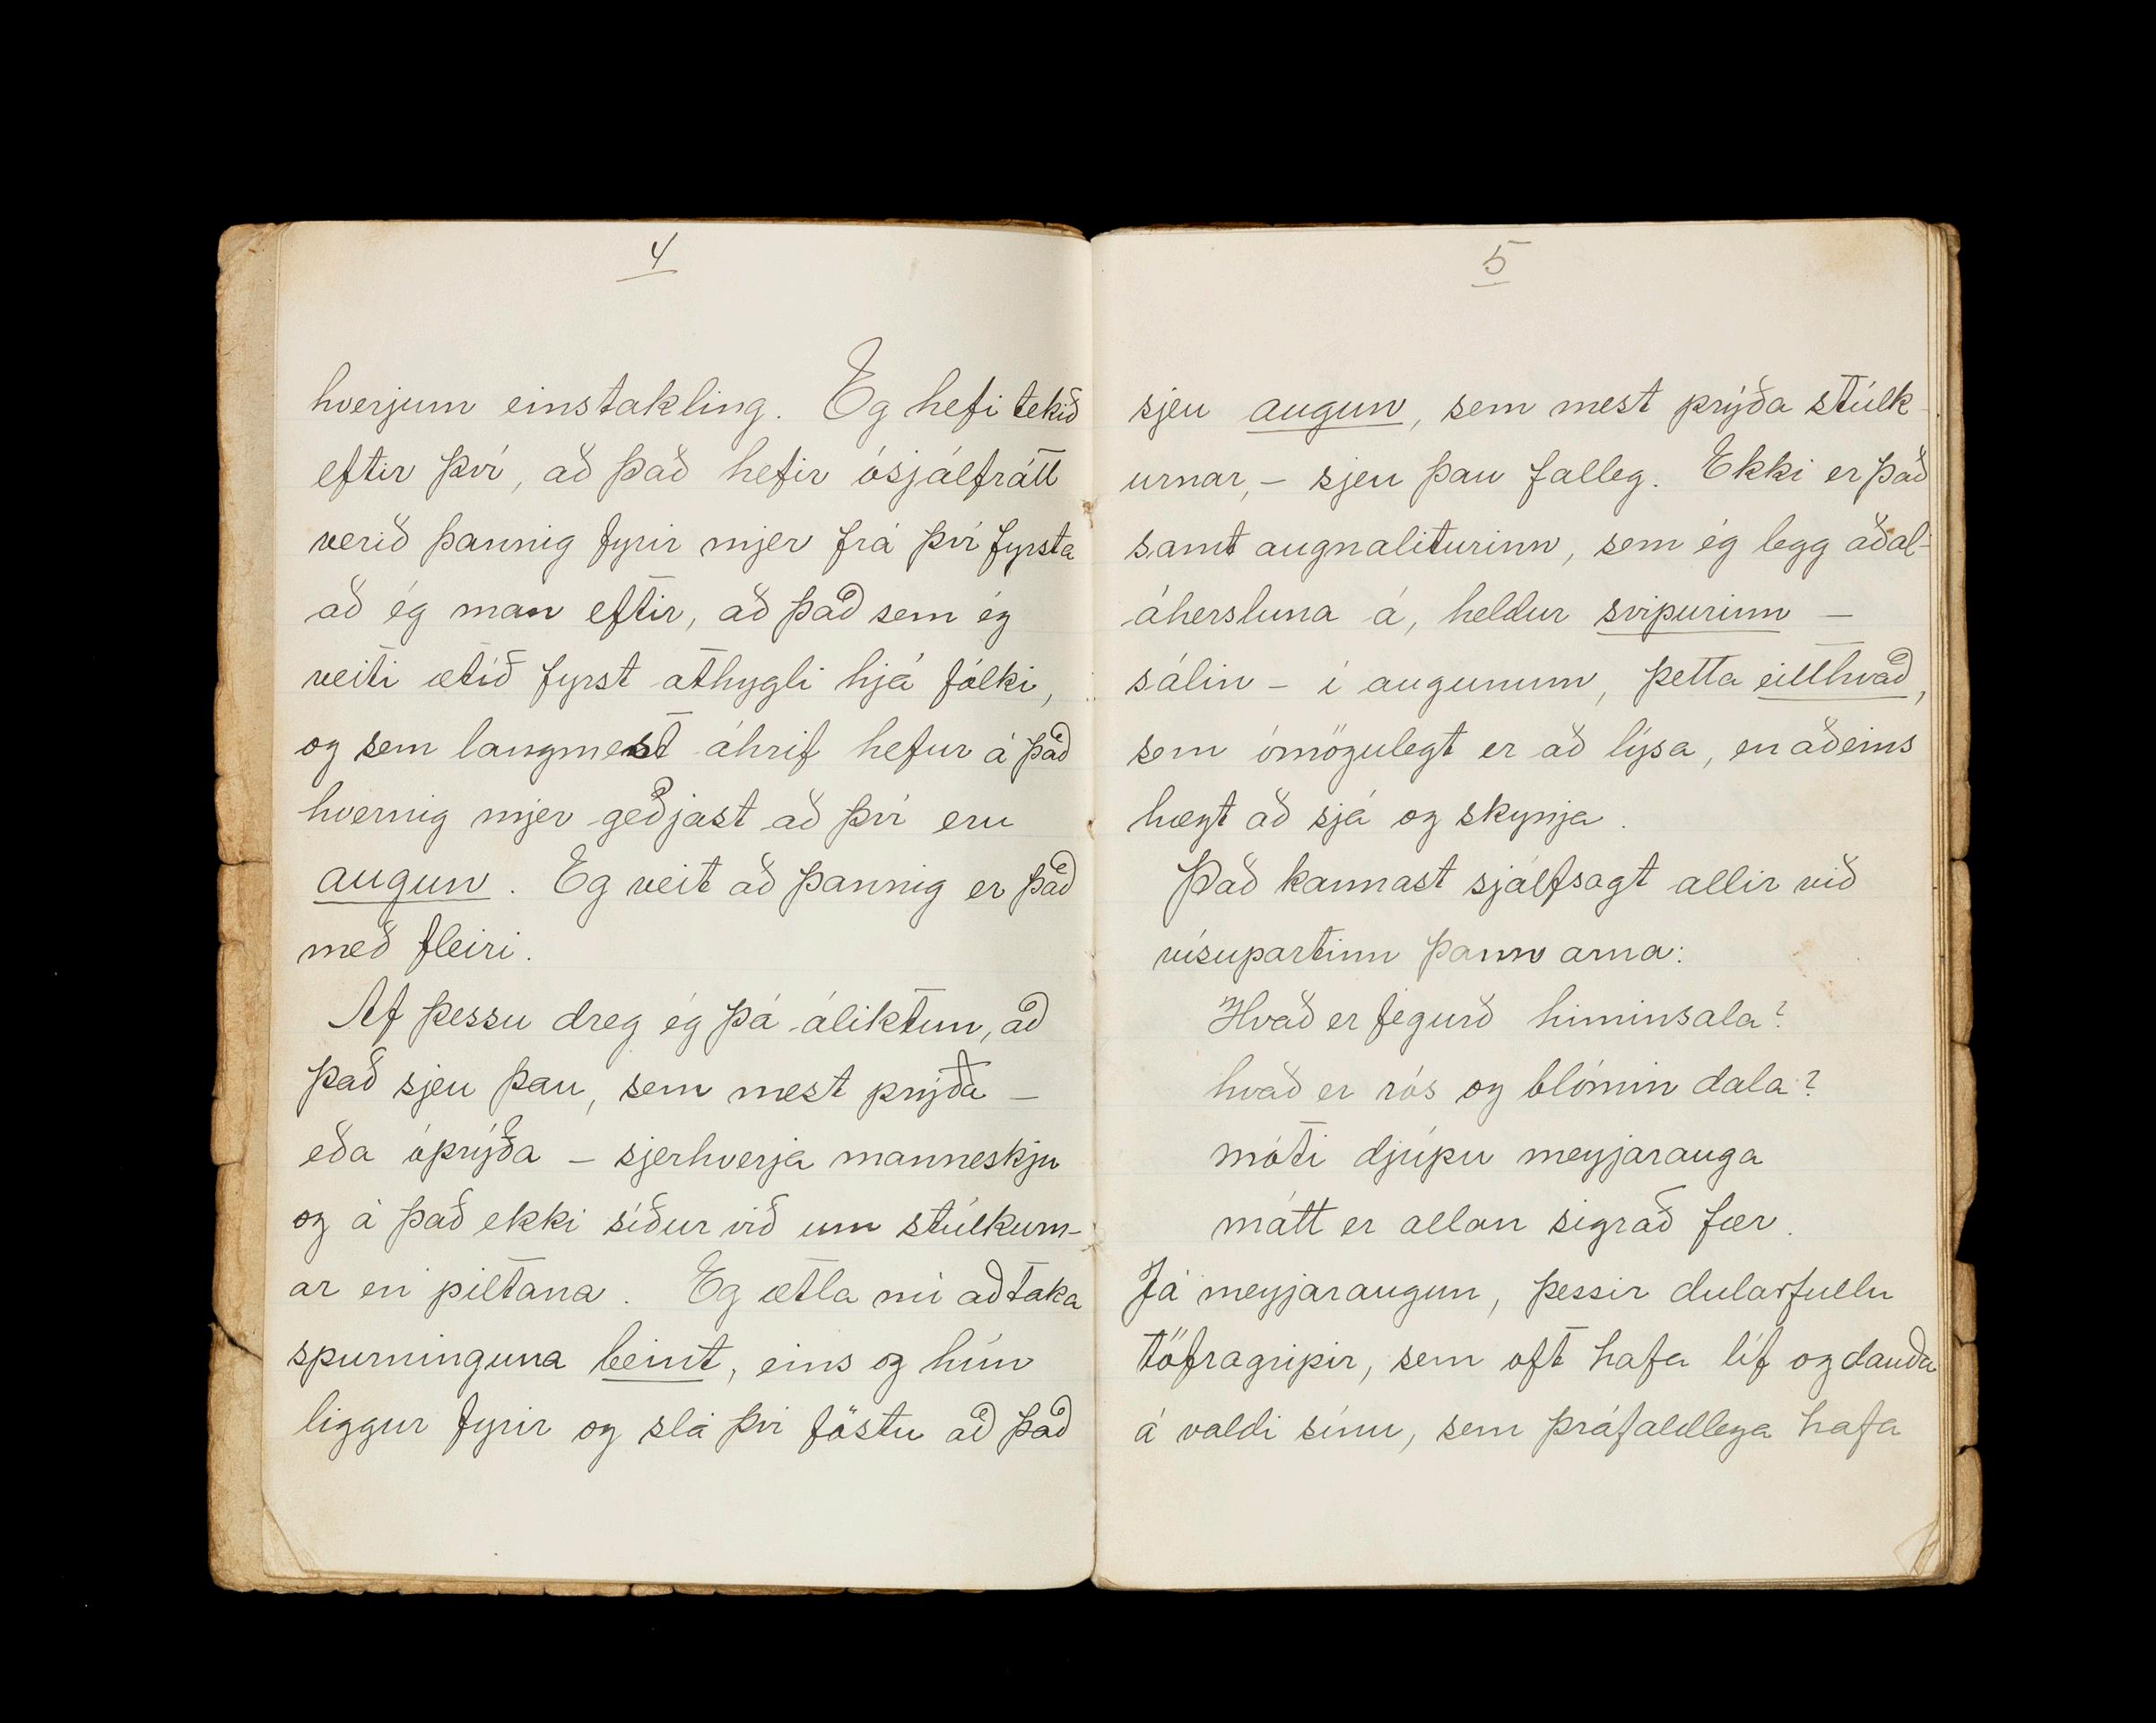 4
hverjum einstakling. Eg hefi tekið
eftir því, að það hefir ósjálfrátt
verið þannig fyrir mjer frá því fyrsta
að ég man eftir, að það sem ég
veiti ætíð fyrst athygli hjá fólki,
og sem langmest áhrif hefur á það
hvernig mjer geðjast að því eru
augun. Eg veit að þannig er það
með fleiri.
Af þessu dreg ég þá áliktun, að
það sjeu þau, sem mest prýða –
eða óprýða – sjerhverja manneskju
og á það ekki síður við um stúlkurn-
ar en piltana. Eg ætla nú að taka
spurninguna beint, eins og hún
liggur fyrir og slá því föstu að það
5
sjeu augun, sem mest prýða stúlk-
urnar, – sjeu þau falleg. Ekki er það
samt augnaliturinn, sem ég legg aðal-
áhersluna á, heldur svipurinn –
sálin – í augunum, þetta eitthvað,
sem ómögulegt er að lýsa, en aðeins
hægt að sjá og skynja.
Það kannast sjálfsagt allir við
vísupartinn þann arna:
Hvað er fegurð himinsala?
hvað er rós og blómin dala?
móti djúpu meyjarauga
mátt er allan sigrað fær.
Já meyjaraugun, þessir dularfullu
töfragripir, sem oft hafa líf og dauða
á valdi sínu, sem þráfaldlega hafa